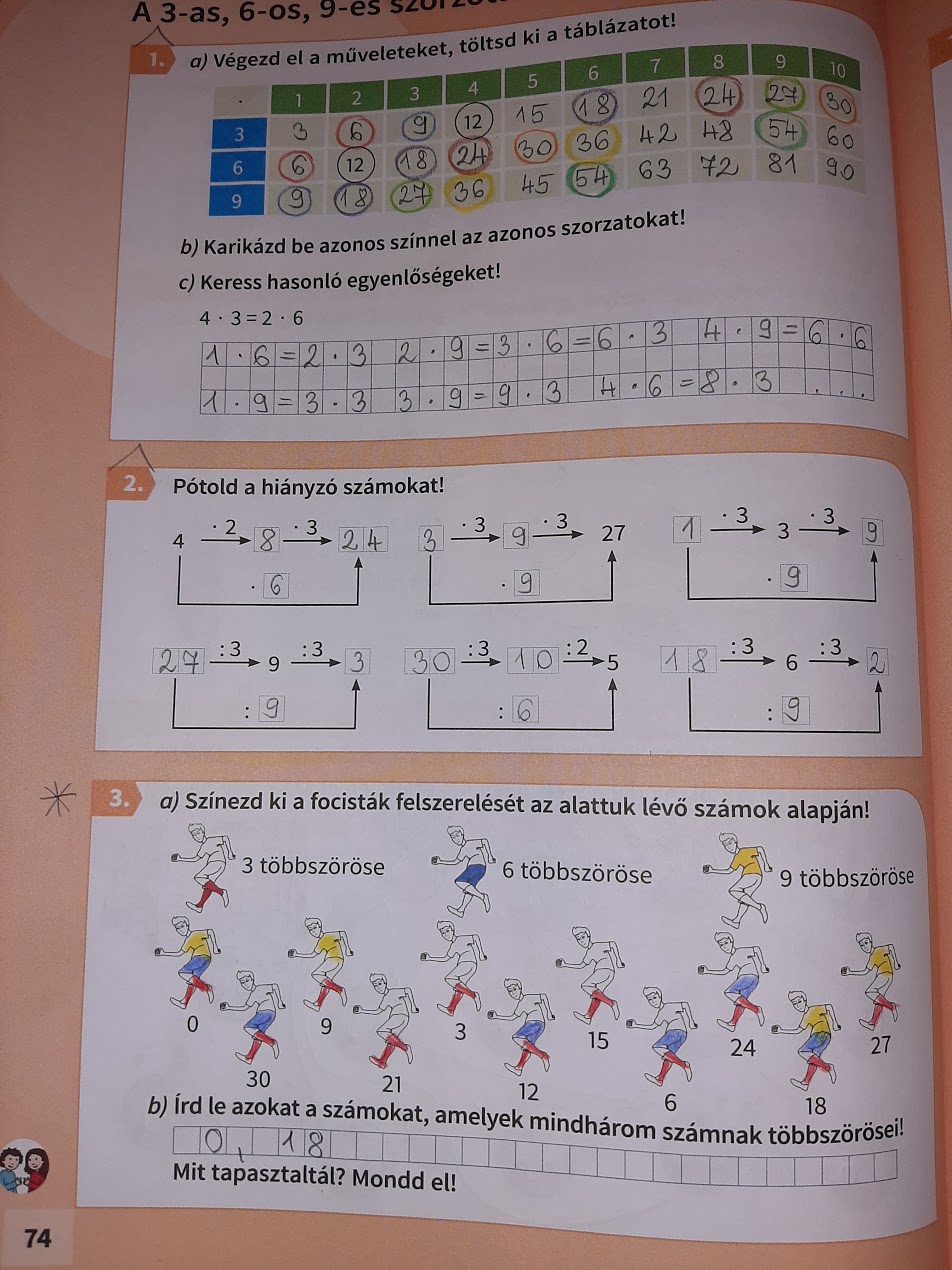 A 3-as, 6-os, 9-es
1. a) Végezd el a műveleteket, töltsd ki a táblázatot!
· 1 2 3 4 5 6 7 8 9 10
3 3 6 9 12 15 18 21 24 27 30
6 6 12 18 24 30 36 42 48 54 60
9 9 18 27 36 45 54 63 72 81 90
b) Karikázd be azonos színnel az azonos szorzatokat!
c) Keress hasonló egyenlőségeket!
4 · 3 = 2 · 6
1 · 6 = 2 · 3 2 · 9 = 3 · 6 = 6 · 3 4 · 9 = 6 · 6
1 · 9 = 3 · 3 3 · 9 = 9 · 3 4 · 6 = 8 · 3 . . .
2. Pótold a hiányzó számokat!
· 2 · 3 · 3 · 3 · 3 · 3
4 8 24 3 9 27 1 3 9
· 6 · 9 · 9
: 3 : 3 : 3 : 2 : 3 : 3
27 9 3 30 10 5 18 6 2
: 9 : 6 : 9
3. a) Színezd ki a focisták felszerelését az alattuk lévő számok alapján!
3 többszöröse 6 többszöröse 9 többszöröse
0 9 3 15 24 27
30 21 12 6 18
b) Írd le azokat a számokat, amelyek mindhárom számnak többszörösei!
0, 18
Mit tapasztaltál? Mondd el!
74